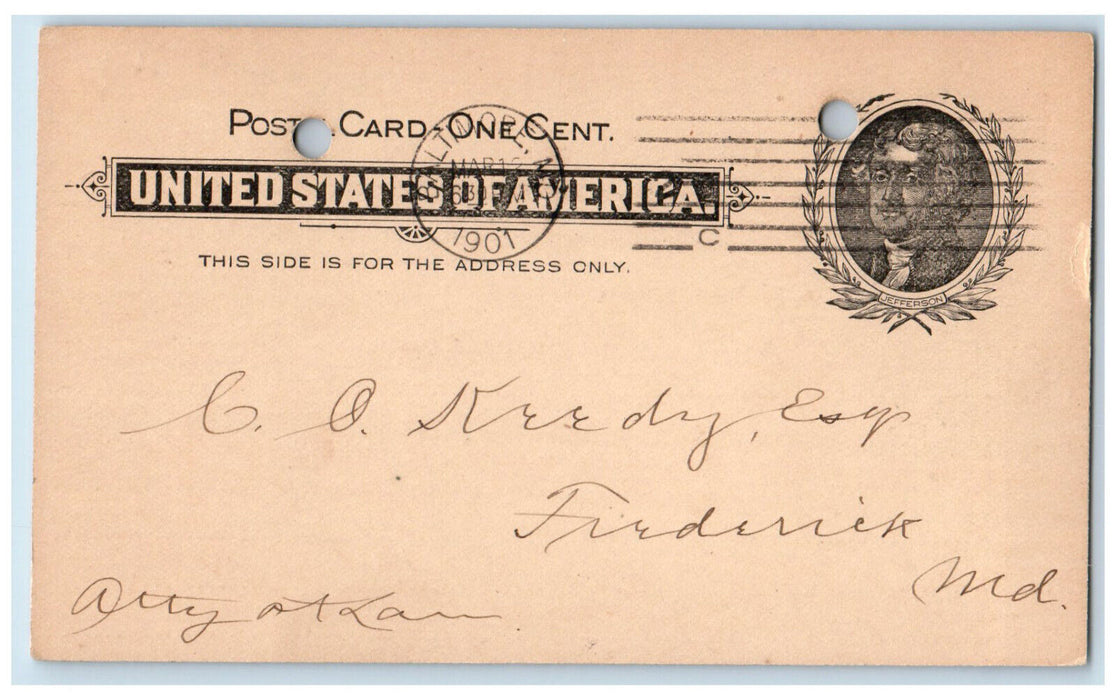 POSTAL CARD-ONE CENT.
UNITED STATES OF AMERICA.
THIS SIDE IS FOR THE ADDRESS ONLY.
LTIMORE, M
MAR
1901
C
JEFFERSON
C. O. Keedy, Esq
Frederick
Md.
Atty at Law